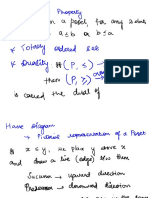 Property
in a poset, for any
a ≤ b or b ≤ a
* Totally ordered set
* Duality If (P, ≤)
then (P, ≥)
is called the dual of
Hasse Diagram
* Pictorial representation of a Poset
x ≤ y, we place y above x
and draw a line (edge) b/w them
Successor → upward direction
Predecessor → downward direction